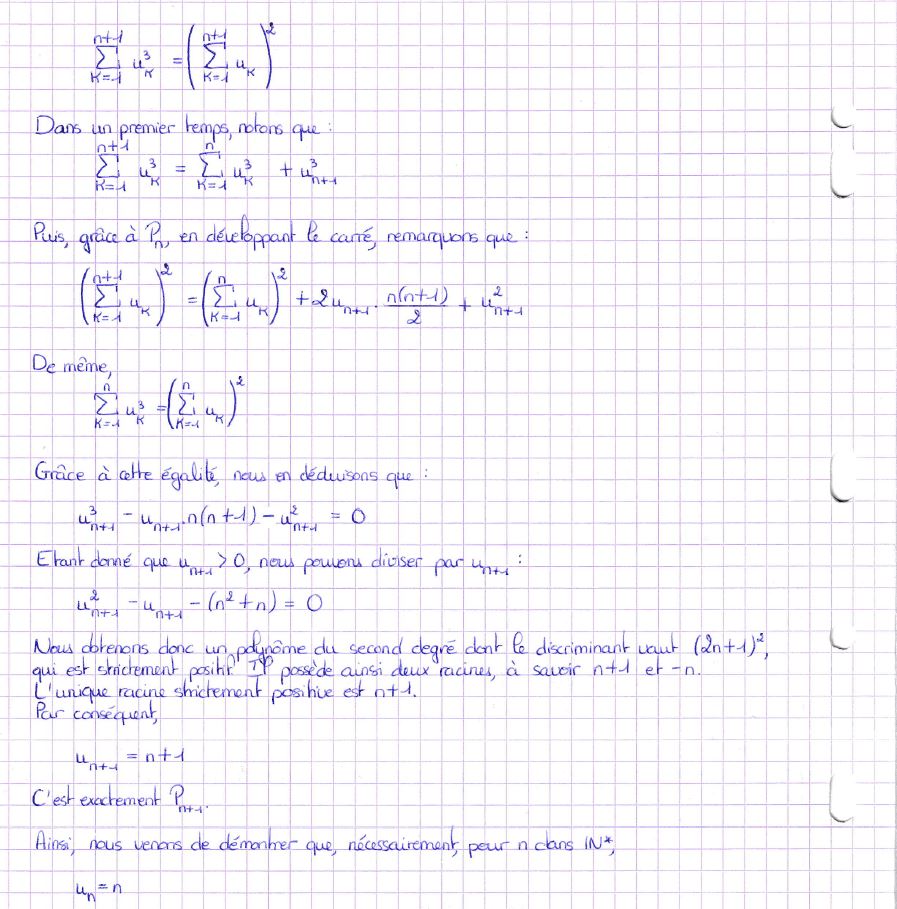 ∑_{K=1}^{n+1} u_K^3 = (∑_{K=1}^{n+1} u_K)^2
Dans un premier temps, notons que :
∑_{K=1}^{n+1} u_K^3 = ∑_{K=1}^{n} u_K^3 + u_{n+1}^3
Puis, grâce à P_n, en développant le carré, remarquons que :
(∑_{K=1}^{n+1} u_K)^2 = (∑_{K=1}^{n} u_K)^2 + 2u_{n+1}. n(n+1)/2 + u_{n+1}^2
De même,
∑_{K=1}^{n} u_K^3 = (∑_{K=1}^{n} u_K)^2
Grâce à cette égalité, nous en déduisons que :
u_{n+1}^3 - u_{n+1}.n(n+1) - u_{n+1}^2 = 0
Etant donné que u_{n+1} > 0, nous pouvons diviser par u_{n+1} :
u_{n+1}^2 - u_{n+1} - (n^2+n) = 0
Nous obtenons donc un polynôme du second degré dont le discriminant vaut (2n+1)^2,
qui est strictement positif. Il possède ainsi deux racines, à savoir n+1 et -n.
L'unique racine strictement positive est n+1.
Par conséquent,
u_{n+1} = n+1
C'est exactement P_{n+1}.
Ainsi, nous venons de démontrer que, nécessairement, pour n dans ℕ*,
u_n = n